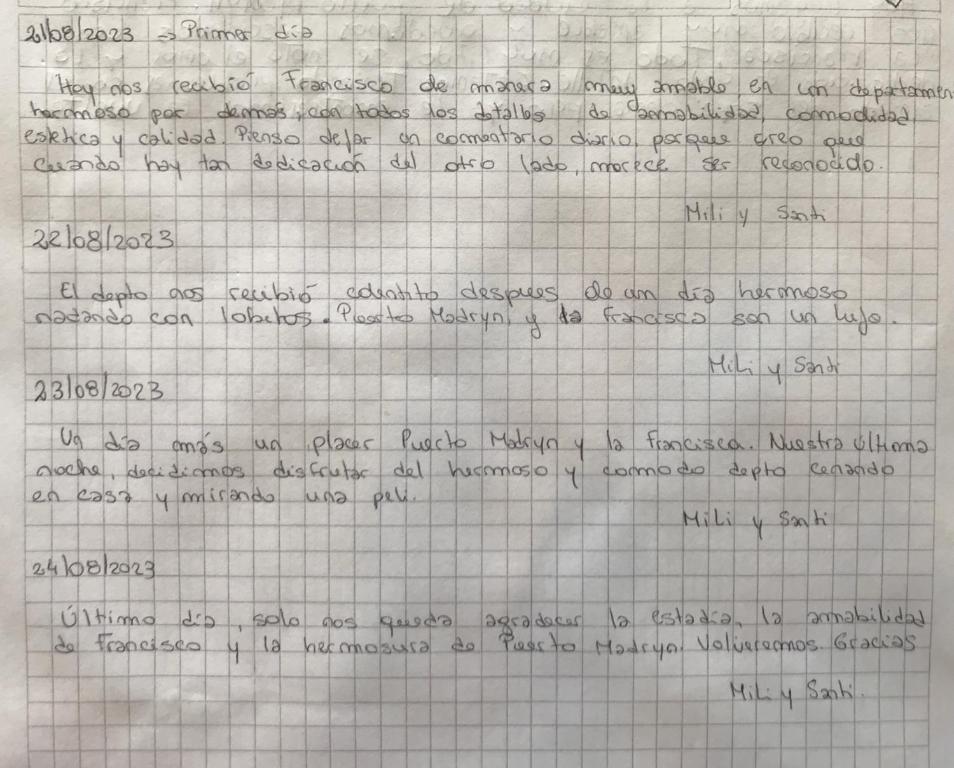 21/08/2023 → Primer día
Hoy nos recibió Francisco de manera muy amable, en un departamen
hermoso por demás, con todos los detalles de amabilidad, commodidad,
estetica y calidad. Pienso dejar un comentario diario, porque creo que
cuando hay tan dedicación del otro lado, merece ser reconocido.
Mili y Santi
22/08/2023
El depto nos recibió calentito despues de un día hermoso
nadando con lobitos. Puerto Madryn, y la Francisca son un lujo.
Mili y Santi
23/08/2023
Un día más un placer Puerto Madryn y la Francisca. Nuestra última
noche, decidimos disfrutar del hermoso y commodo depto cenando
en casa y mirando una peli.
Mili y Santi
24/08/2023
Último día, solo nos queda agradecer la estadía, la amabilidad
de Francisco y la hermosura de Puerto Madryn. Volveremos. Gracias
Mili y Santi.